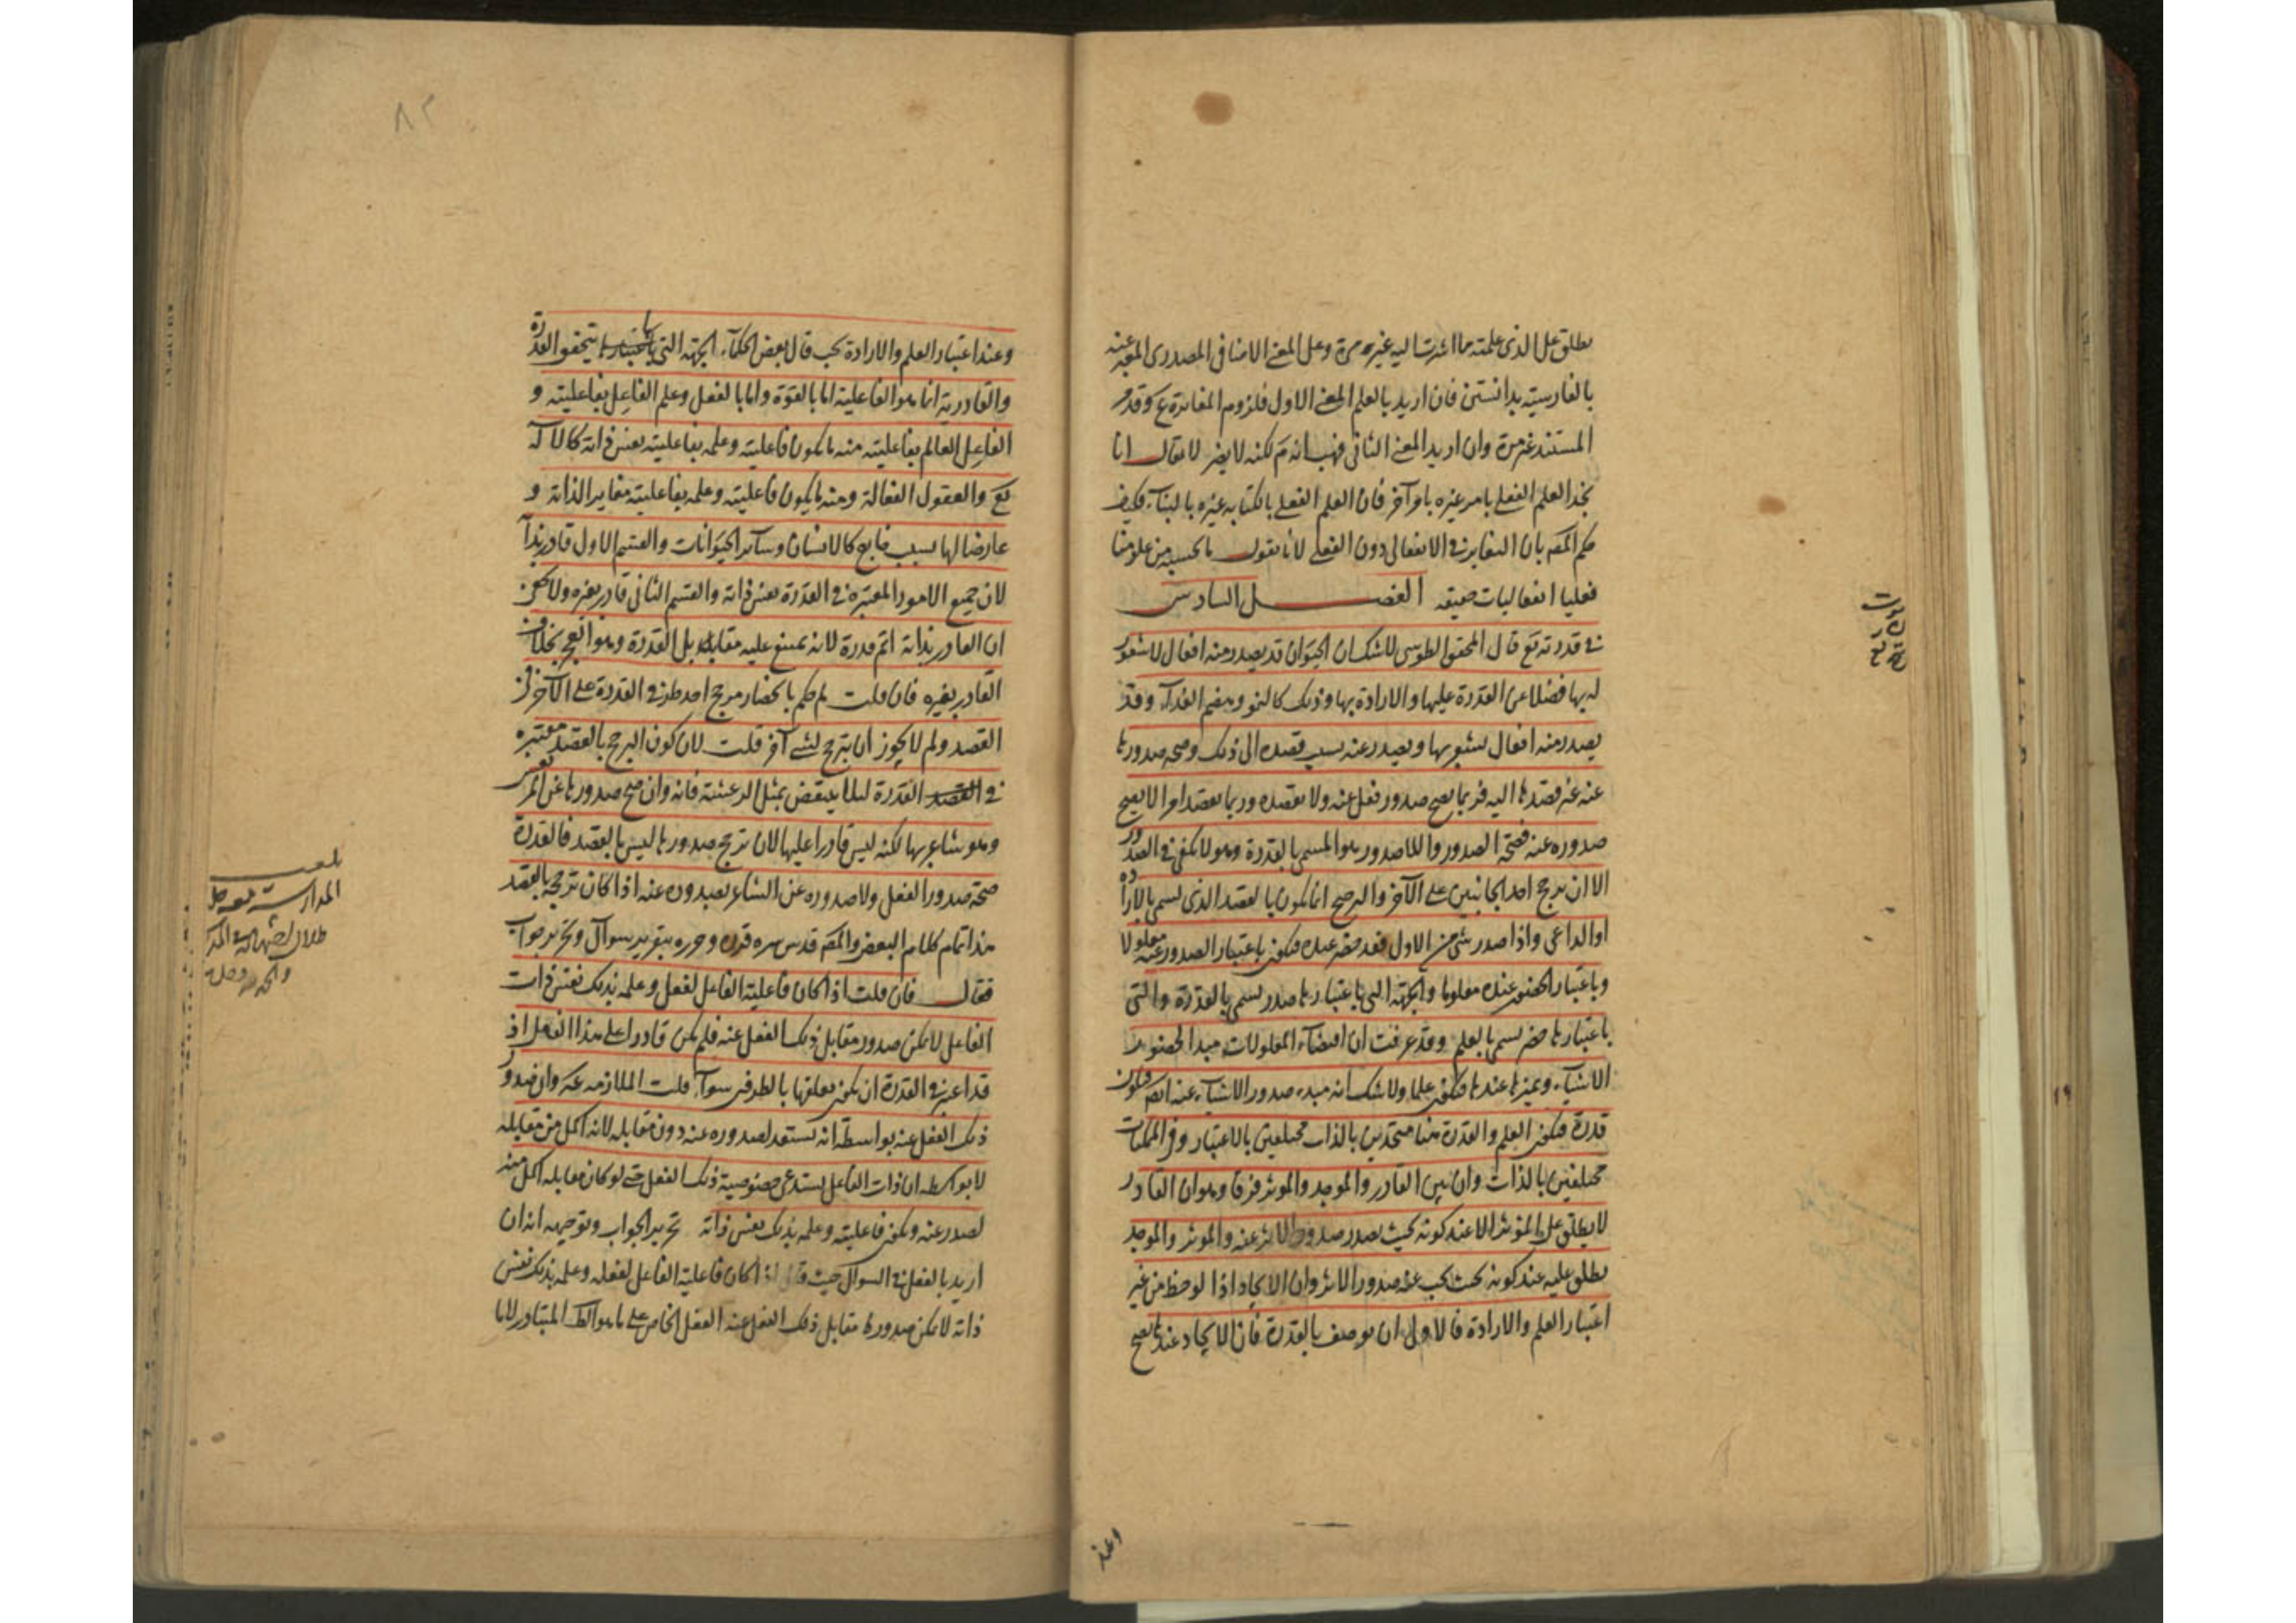 يطلق على الذى علمته مما اشرت اليه غير مرة وعلى المعنى الاضافى المصدرى المعبر عنه
بالفارسية بدانستن فان اريد بالعلم المعنى الاول فلزوم المغايرة ع وقد مر
المستند غير مرة وان اريد المعنى الثانى فهب انه م لكنه لا يضر لا يقال انا
نجد العلم الفعلى بامر غيره بامر آخر فان العلم الفعلى بالكتابة غيره بالبناء فكيف
حكم المص بان التغاير فى الانفعالى دون الفعلى لانا نقول ما نحسبه من علومنا
فعليا انفعاليات حقيقة الفصل السادس
فى قدرته تع قال المحقق الطوسى لا شك ان الحيوان قد يصدر منه افعال لا شعور
له بها فضلا عن القدرة عليها والارادة بها وذلك كالنمو وهضم الغذاء وقد
يصدر منه افعال يشعر بها ويصدر عنه بسبب قصده الى ذلك وصحة صدورها
عنه غير قصدها اليه فربما يصح صدور فعل عنه ولا يقصده وربما يقصد امرا لا يصح
صدوره عنه فصحة الصدور واللاصدور هو المسمى بالقدرة وهو لا يكفى فى الصدور
الا ان يرجح احد الجانبين على الآخر والترجيح انما يكون بالقصد الذى يسمى بالارادة
او الداعى واذا صدر شئ من الاول فقد حضر عنده فيكون باعتبار الصدور عنه معلولا
وباعتبار الحضور عنده معلوما والجهة التى باعتبارها صدر يسمى بالقدرة والتى
باعتبارها حضر يسمى بالعلم وقد عرفت ان اقتضاء المعلولات مبدأ لحضور
الاشياء وتميزها عندها فيكون علما ولا شك انه مبدء صدور الاشياء عنه ايضا فيكون
قدرة فيكون العلم والقدرة هنا متحدين بالذات مختلفين بالاعتبار وفى الممكنات
مختلفين بالذات وان بين القادر والموجد والموثر فرقا وهو ان القادر
لا يطلق على الموثر الا عند كونه بحيث يصدر صدور الاثر عنه والموثر والموجد
يطلق عليه عند كونه بحيث يجب عنه صدور الاثر وان الايجاد اذا لوحظ من غير
اعتبار العلم والارادة فالاولى ان يوصف بالقدرة فان الايجاد عندها يصح
وعند
٨٢
وعند اعتبار العلم والارادة يجب قال بعض الحكماء الجهة التى باعتبارها يتحقق القدرة
والقادرية انما هو الفاعلية اما بالقوة واما بالفعل وعلم الفاعل بفاعليته و
الفاعل العالم بفاعليته منه ما يكون فاعليته وعلمه بفاعليته بعين ذاته كالاله
تع والعقول الفعالة ومنه ما يكون فاعليته وعلمه بفاعليته مغاير الذاته و
عارضا لها بسبب خارج كالانسان وسائر الحيوانات والقسم الاول قادر بذاته
لان جميع الامور المعتبرة فى القدرة بعين ذاته والقسم الثانى قادر بغيره ولا يخفى
ان القادر بذاته اتم قدرة لانه يمتنع عليه مقابل القدرة وهو العجز بخلاف
القادر بغيره فان قلت لم حكم بانحصار مرجح احد طرفى القدرة على الآخر فى
القصد ولم لا يجوز ان يترجح لشئ آخر قلت لان كون الترجح بالقصد معتبرة
فى تفسير القدرة لئلا ينتقض بمثل الرعشة فانه وان صح صدورها عن المر
وهو شاعر بها لكنه ليس قادرا عليها لان ترجح صدورها ليس بالقصد فالقدرة
صحة صدور الفعل ولا صدوره عن الشاعر بصدوره عنه اذا كان ترجحه بالقصد
هذا تمام كلام البعض والمص قدس سره قرره وحرره بتقرير سوال وتحرير جواب
فقال فان قلت اذا كان فاعلية الفاعل لفعل وعلمه بذلك نفس ذات
الفاعل لا يمكن صدور مقابل ذلك الفعل عنه فلم يكن قادرا على هذا الفعل اذ
قد اعتبر فى القدرة ان يكون تعلقها بالطرفين سواء قلت الملازمة ع وان صدور
ذلك الفعل عنه بواسطة انه يستعد لصدوره عنه دون مقابله لانه اكمل من مقابله
لا بواسطة ان ذات الفاعل يستدعى خصوصية ذلك الفعل حتى لو كان مقابله اكمل منه
لصدر عنه ويكون فاعليته وعلمه بذلك بعين ذاته تحرير الجواب وتوجيهه انه ان
اريد بالفعل فى السوال حيث قال اذا كان فاعلية الفاعل لفعله وعلمه بذلك نفس
ذاته لا يمكن صدور مقابل ذلك الفعل عنه الفعل الخاص على ما هو الظ المتبادر لانا